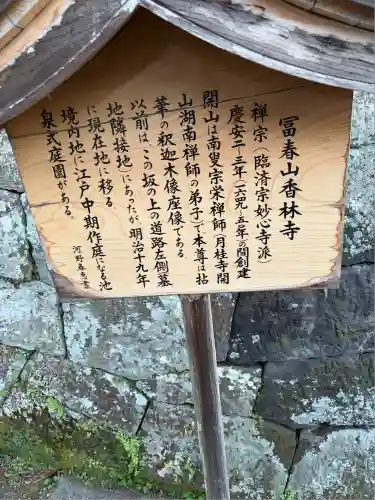 冨春山香林寺
禅宗(臨済宗妙心寺派)
慶安二−三年(一六四九−五〇年)創建
開山は南叟宗栄禅師(月桂寺開
山湖南禅師の弟子)で本尊は拈
華の釈迦木像座像である
以前は、この坂の上の道路左側墓
地隣接地)にあったが明治十九年
に現在地に移る
境内地に江戸中期作庭になる池
泉式庭園がある。
河野春光書